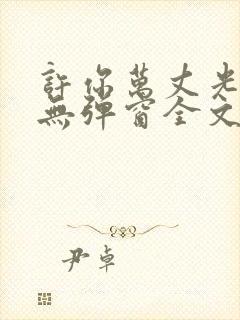 許你萬丈光
無彈窗全文
尹卓